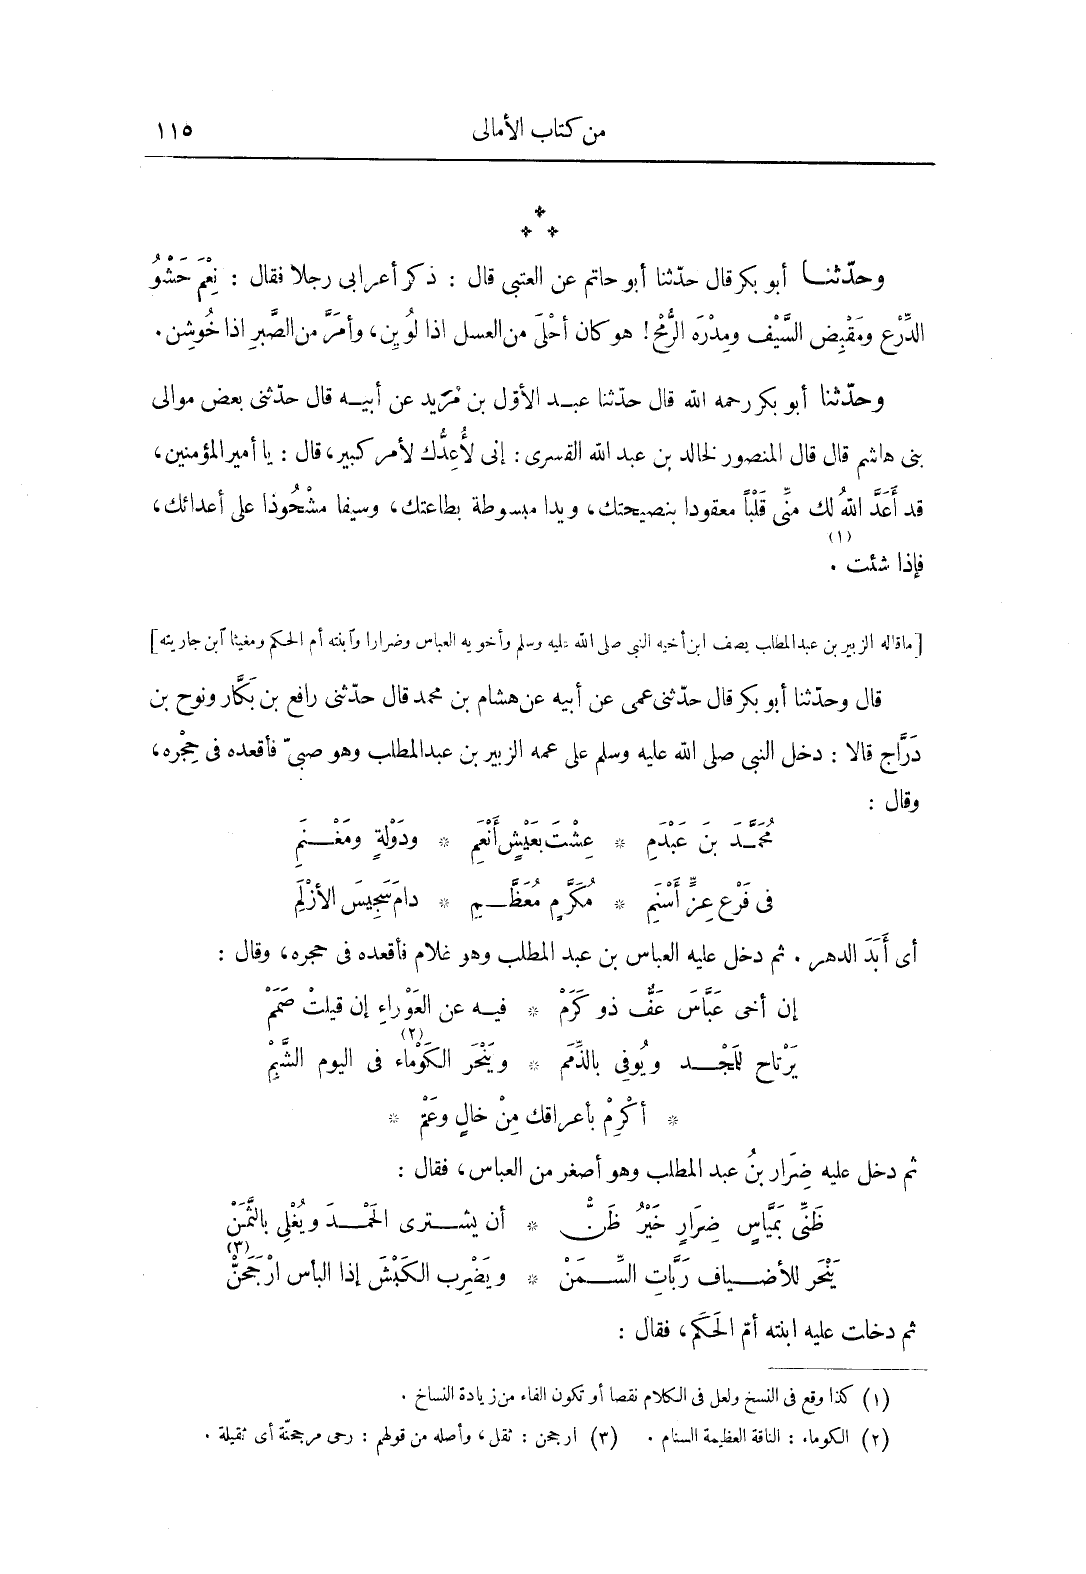 من كتاب الأمالى ١١٥
وحدّثنا أبو بكر قال حدّثنا أبو حاتم عن العتبى قال : ذكر أعرابى رجلا فقال : نِعْمَ حَشْوُ
الدِّرْع ومَقْبِض السَّيْف ومِدْرَه الرُّمْح! هو كان أحْلَى من العسل اذا لُويِن، وأمَرَّ من الصَّبِر اذا خُوشِن.
وحدّثنا أبو بكر رحمه الله قال حدّثنا عبد الأوّل بن مَزيد عن أبيه قال حدّثنى بعض موالى
بنى هاشم قال قال المنصور لخالد بن عبد الله القسرى : إنى لأُعِدُّك لأمر كبير، قال : يا أمير المؤمنين،
قد أَعَدَّ اللهُ لك منِّى قَلْبًا معقودا بنصيحتك، ويدا مبسوطة بطاعتك، وسيفا مشْحُوذا على أعدائك،
فإذا شئت (١) .
[ماقاله الزبير بن عبدالمطلب يصف ابن أخيه النبى صلى الله عليه وسلم وأخويه العباس وضرارا وآبنته أم الحكم ومغيثا آبن جاريته]
قال وحدّثنا أبو بكر قال حدّثنى عمى عن أبيه عن هشام بن محمد قال حدّثنى رافع بن بَكَّار ونوح بن
دَرَّاج قالا : دخل النبى صلى الله عليه وسلم على عمه الزبير بن عبدالمطلب وهو صبىّ فأقعده فى حِجْره،
وقال :
مُحَمَّدَ بنَ عَبْدَمِ * عِشْتَ بعَيْشٍ أَنْعَمِ * ودَوْلةٍ ومَغْنَمِ
فى فَرْع عِزٍّ أَسْنَمِ * مُكَرَّمٍ مُعَظَّمِ * دامَ سَجِيسَ الأَزْلَمِ
أى أَبَدَ الدهر . ثم دخل عليه العباس بن عبد المطلب وهو غلام فأقعده فى حجره، وقال :
إن أخى عَبَّاسَ عَفٌّ ذو كَرَمْ * فيه عن العَوْراءِ إن قيلتْ صَمَمْ
يَرْتاح للمَجْد ويُوفِى بالذِّمَم * ويَنْحَر الكَوْماء (٢) فى اليوم الشَّبِمْ
* أكْرِمْ بأعراقك مِنْ خالٍ وعَمّ *
ثم دخل عليه ضِرَار بنُ عبد المطلب وهو أصغر من العباس، فقال :
ظَنِّى بمَيَّاسٍ ضِرَارٍ خَيْرُ ظَنّْ * أن يشترى الحَمْدَ ويُغْلِى بالثَّمَنْ
يَنْحَر للأضياف رَبَّاتِ السِّمَنْ * ويَضْرِب الكَبْشَ إذا البأس ارْجَحَنّْ (٣)
ثم دخلت عليه ابنته أمّ الحَكَم، فقال :
(١) كذا وقع فى النسخ ولعل فى الكلام نقصا أو تكون الفاء من زيادة النساخ .
(٢) الكوماء : الناقة العظيمة السنام . (٣) ارجحن : ثقل، وأصله من قولهم : رحى مرجحنّة أى ثقيلة .